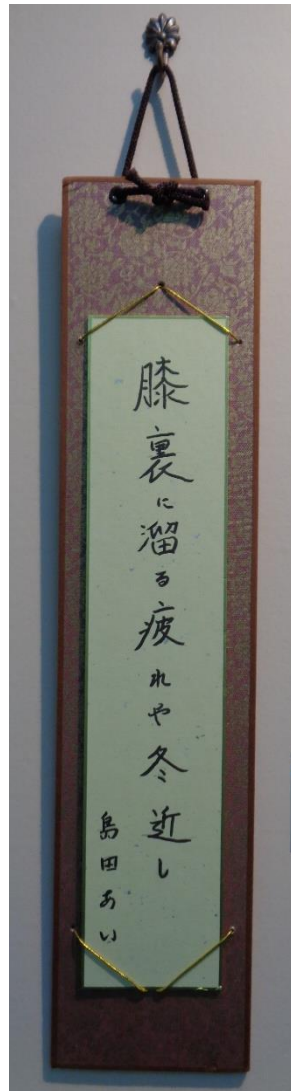 膝裏に溜る疲れや冬近し
島田あい